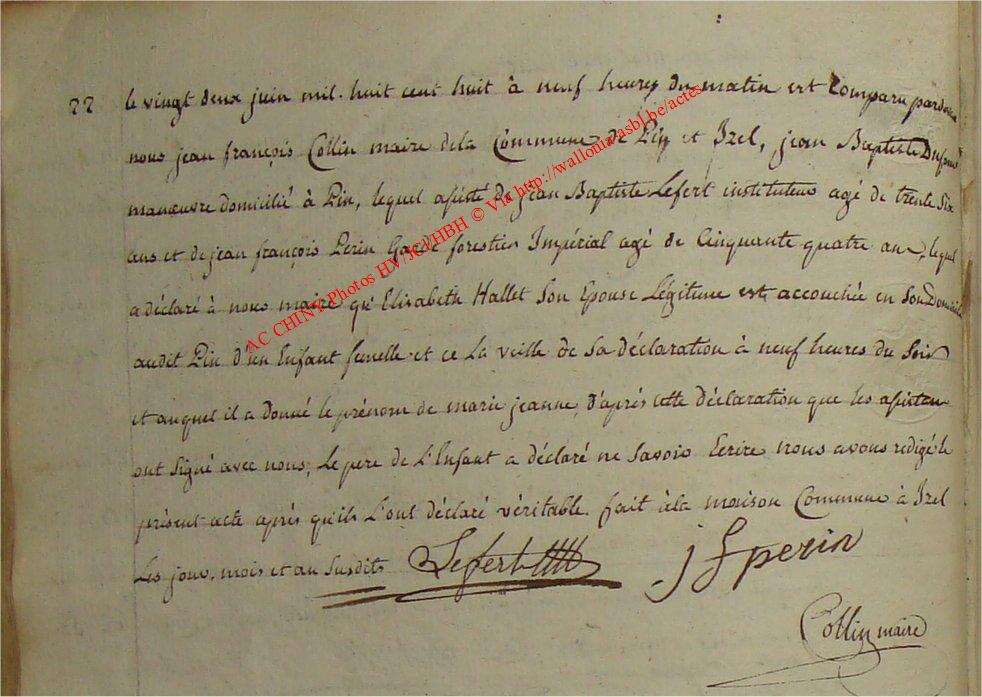 22 le vingt deux juin mil. huit cent huit à neuf heures du matin est Comparu pardevant
nous jean françois Collin maire dela Commune de Pin et Izel, jean Baptiste
manœuvre domicilié à Pin, lequel assisté de jean Baptiste Lefert instituteur agé de trente Six
ans et de jean françois Perin Garde forestier Impérial agé de Cinquante quatre ans, lequel
a déclaré à nous maire qu'Elisabeth Hallet Son Epouse Légitime est accouchée en Son Domicile
audit Pin d'un Enfant femelle et ce La veille de Sa déclaration à neuf heures du Soir
et auquel il a donné le prénom de marie jeanne, d'après cette déclaration que les assistans
ont Signé avec nous; Le pere de L'Enfant a déclaré ne Savoir Ecrire nous avons redigé le
présent acte après qu'ils L'ont déclaré véritable. fait àla maison Commune à Izel
Les jour, mois et an Susdits Lefert J f perin
Collin maire
AC CHINY Photos HV/JCI/HBH © Via http://wallonia-asbl.be/actes